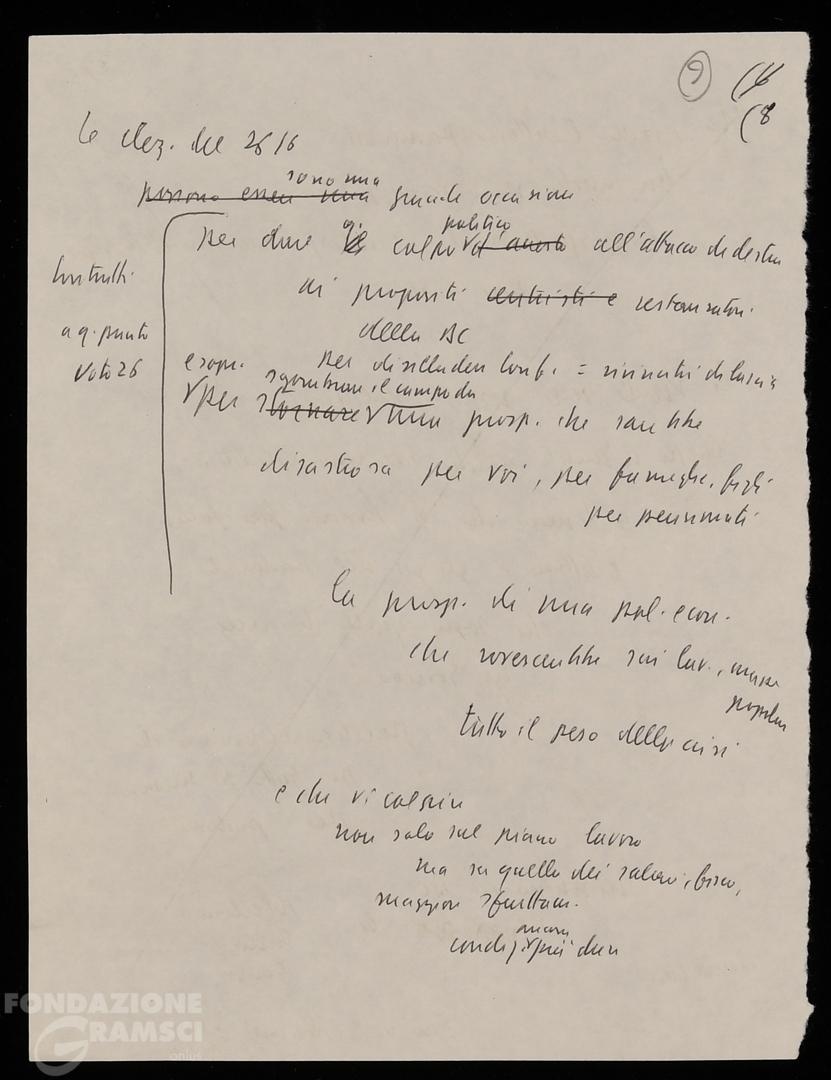 9
(8
Le elez. del 26/6
sono una
possono essere una grande occasione
politico
per dare colpo all'attacco di destra
ai propositi centristi e restauratori
della DC
Contratti
a q. punto
voto 26
per disilludere Conf.
sgombrare il campo da
per una prosp. che sarebbe
disastrosa per voi, per famiglie, figli
per pensionati
la prosp. di una pol. econ.
che rovescerebbe sui lav., masse
popolari
tutto il peso della crisi
e che vi colpire
non solo sul piano lavoro
ma su quello dei salari, fisco,
maggior sfruttam.
ancora
condiz. più dure
FONDAZIONE
GRAMSCI
onlus